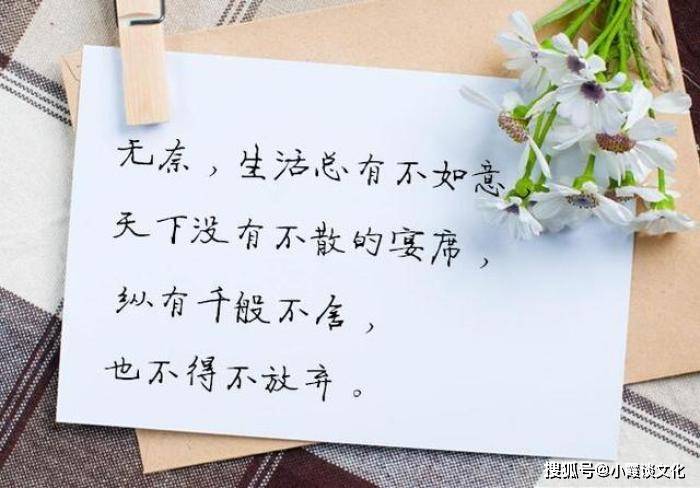 无奈，生活总有不如意，
天下没有不散的宴席，
纵有千般不舍，
也不得不放弃。
搜狐号@小霞谈文化